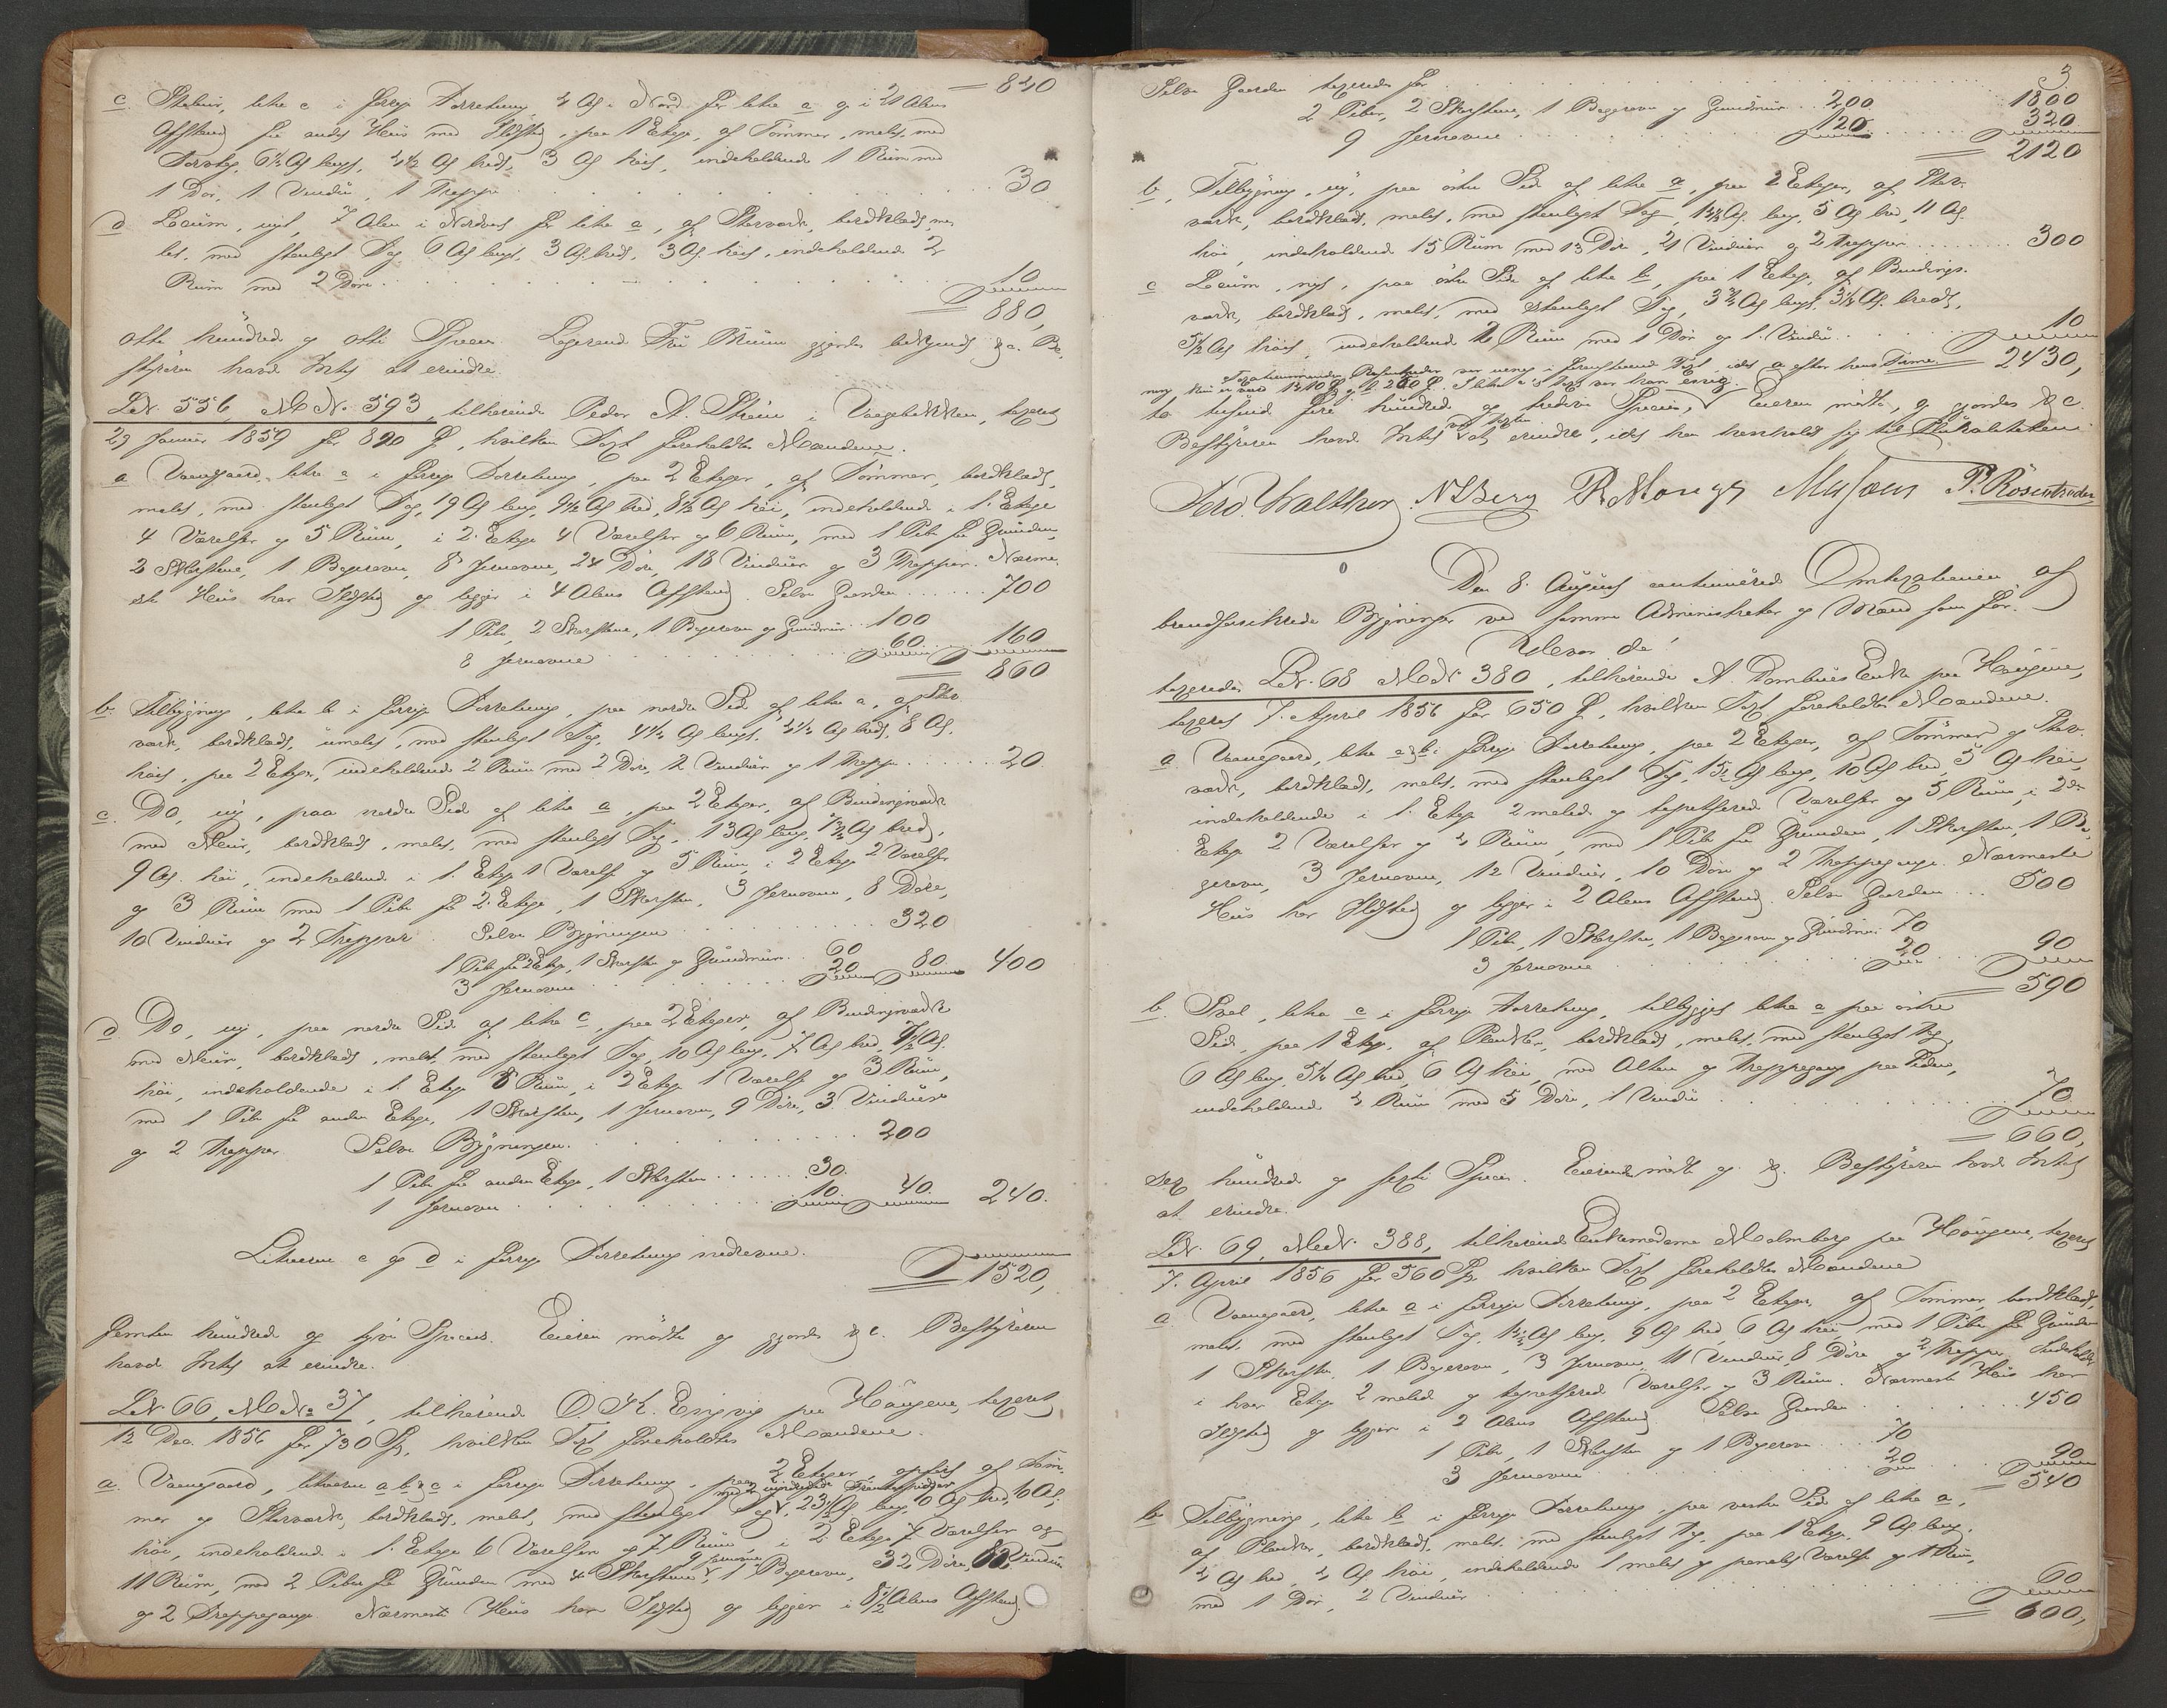 = 840
c. Stabur, litra c i forrige Forretning, 4 Al. i Nord for litra a og i 21 Alens
Afstand fra andet Huus med Ildsted, paa 1 Etage, af Tømmer, malet, med
Torvtag, 6½ Al. langt, 4½ Al. bredt, 3 Al. høit, indeholdende 1 Rum med
1 Dør, 1 Vindu, 1 Trappe . . . 30
d Locum, nyt, 7 Alen i Nordvest for litra a, af Stavværk, bordklædt, ma-
let, med steenlagt Tag, 6 Al. langt, 3 Al. bredt, 3 Al. høit, indeholdende 2
Rum med 2 Døre . . . 10
880,
otte hundrede og otti Species. Logerende Fru Bruun gjordes bekjendt &c. Be-
styreren havde Intet at erindre.
LN. 556, MN. 593, tilhørende Peder A. Strøm i Vaagebakken, taxeret
29 Januar 1859 for 890 Sp, hvilken Taxt foreholdtes Mændene.
a Vaangaard, litra a i forrige Forretning, paa 2 Etager, af Tømmer, bordklædt,
malet, med steenlagt Tag, 19 Al. lang, 9½ Al. bred, 8½ Al. høi, indeholdende i 1. Etage
4 Værelser og 5 Rum, i 2. Etage 4 Værelser og 6 Rum, med 1 Pibe fra Grunden,
2 Skorstene, 1 Bagerovn, 8 Jernovne, 24 Døre, 18 Vinduer og 3 Trapper. Nærme-
ste Huus har Ildsted og ligger i 4 Alens Afstand. Selve Gaarden . . . 700
1 Pibe, 2 Skorstene, 1 Bagerovn og Grundmuur . . 100
8 Jernovne . . . 60 160
860
b. Tilbygning, litra b i forrige Forretning, paa nordre Side af litra a, af Stav-
værk, bordklædt, umalet, med steenlagt Tag, 4½ Al. langt, 4½ Al. bredt, 8 Al.
høit, paa 2 Etager, indeholdende 2 Rum med 2 Døre, 2 Vinduer og 1 Trappe . . . 20
c. Do, ny, paa nordre Side af litra a, paa 2 Etager, af Bindingsværk
med Muur, bordklædt, malet, med steenlagt Tag, 13 Al. lang, 7½ Al. bred,
9 Al. høi, indeholdende i 1. Etage 1 Værelse og 5 Rum, i 2 Etage 2 Værelser
og 3 Rum med 1 Pibe fra 2. Etage, 1 Skorsten, 3 Jernovne, 8 Døre,
10 Vinduer og 2 Trapper. Selve Bygningen . . . 320
1 Pibe fra 2 Etage, 1 Skorsten og Grundmuur . . 60
3 Jernovne . . . 20 80 400
d Do, ny, paa nordre Side af litra c, paa 2 Etager, af Bindingsværk
med Muur, bordklædt, malet, med steenlagt Tag, 10 Al. lang, 7 Al. bred, 7½ Al.
høi, indeholdende i 1. Etage 8 Rum, i 2 Etage 1 Værelse og 3 Rum,
med 1 Pibe fra anden Etage, 1 Skorsten, 1 Jernovn, 9 Døre, 3 Vinduer
og 2 Trapper. Selve Bygningen . . . 200
1 Pibe fra anden Etage, 1 Skorsten . . . 30
1 Jernovn . . . 10 40 240.
Litraerne c og d i forrige Forretning nedrevne.
1520,
femten hundrede og tyve Species. Eieren mødte og gjordes &c. Bestyreren
havde Intet at erindre.
LN. 66, MN. 37, tilhørende O. K. Engvig paa Haugene, taxeret
12 Dec. 1856 for 730 Sp, hvilken Taxt foreholdtes Mændene.
a. Vaangaard, litraerne a b & c i forrige Forretning, paa 2 Etager, opført af Tøm-
mer og Stavværk, bordklædt, malet, med steenlagt Tag, 23½ Al. lang, 10 Al. bred, 6 Al.
høi, indeholdende i 1. Etage 6 Værelser og 7 Rum, i 2 Etage 7 Værelser og
11 Rum, med 2 Piber fra Grunden med 4 Skorstene, 9 Jernovne, 1 Bagerovn, 32 Døre, Vinduer
og 2 Trappegange. Nærmeste Huus har Ildsted og ligger i 8½ Alens Afstand.
3.
Selve Gaarden taxeredes for . . . 1800
2 Piber, 2 Skorstene, 1 Bagerovn og Grundmuur . . 200
9 Jernovne . . . 120 320
2120
b. Tilbygning, ny, paa østre Side af litra a, paa 2 Etager, af Stav-
værk, bordklædt, malet, med steenlagt Tag, 14½ Al. lang, 5 Al. bred, 11 Al.
høi, indeholdende 15 Rum med 13 Døre, 21 Vinduer og 2 Trapper . . . 300
c Locum, nyt, paa østre Side af litra b, paa 1 Etage, af Bindings-
værk, bordklædt, malet, med steenlagt Tag, 3¾ Al. langt, 3¼ Al. bredt,
5½ Al. høit, indeholdende 2 Rum med 1 Dør og 1 Vindu . . . 10
2430,
to tusinde fire hundrede og tredive Species. Eieren mødte, og gjordes &c.
Bestyreren havde Intet at erindre, idet han henholdt sig til Pluraliteten.
Ferd. Walther. N Berg P. Rosentræder
Den 8. August continueredes Omtaxationen af
brandforsikrede Bygninger ved samme Administrator og Mænd som før.
Blev da
taxeredes LN. 68 MN. 380, tilhørende A. Dambues Enke paa Haugene,
taxeret 7. April 1856 for 650 Sp, hvilken Taxt foreholdtes Mændene.
a Vaangaard, litra a & b i forrige Forretning, paa 2 Etager, af Tømmer og Stav-
værk, bordklædt, malet, med steenlagt Tag, 15½ Al. lang, 10 Al. bred, 5 Al. høi,
indeholdende i 1. Etage 2 malede og tapetserede Værelser og 5 Rum, i 2den
Etage 2 Værelser og 4 Rum, med 1 Pibe fra Grunden, 1 Skorsten, 1 Ba-
gerovn, 3 Jernovne, 12 Vinduer, 10 Døre og 2 Trappegange. Nærmeste
Huus har Ildsted og ligger i 2 Alens Afstand. Selve Gaarden . . . 500
1 Pibe, 1 Skorsten, 1 Bagerovn og Grundmuur 70
3 Jernovne . . . 20 90
590
b. Sval, litra c i forrige Forretning, tilbygget litra a paa østre
Side, paa 1 Etage, af Planker, bordklædt, malet, med steenlagt Tag,
6 Al. lang, 5½ Al. bred, 6 Al. høi, med Altan og Trappegang paa Siden,
indeholdende 4 Rum med 5 Døre, 1 Vindu . . . 70
660,
sex hundrede og sexti Species. Eierinden mødte og &c. Bestyreren havde Intet
at erindre.
LN. 69, MN. 388, tilhørende Enkemadame Malmberg paa Haugene, taxeret
7. April 1856 for 560 Sp, hvilken Taxt foreholdtes Mændene
a. Vaangaard, litra a i forrige Forretning, paa 2 Etager, af Tømmer, bordklædt,
malet, med steenlagt Tag, 14½ Al. lang, 9 Al. bred, 6 Al. høi, med 1 Pibe fra Grunden
1 Skorsten, 1 Bagerovn, 3 Jernovne, 11 Vinduer, 8 Døre og 2 Trapper, indeholder
i hver Etage 2 malede og tapetserede Værelser og 3 Rum. Nærmeste Huus har
Ildsted og ligger i 2 Alens Afstand. Selve Gaarden . . . 450
1 Pibe, 1 Skorsten og 1 Bagerovn . . . 70
3 Jernovne . . . 20 90
540
b. Tilbygning, litra b i forrige Forretning, paa vestre Side af litra a,
af Planker, bordklædt, malet, med steenlagt Tag, paa 1 Etage, 9 Al. lang,
4 Al. bred, 4 Al. høi, indeholdende 1 malet og panelet Værelse og 1 Rum,
med 1 Dør, 2 Vinduer . . . 60
600,